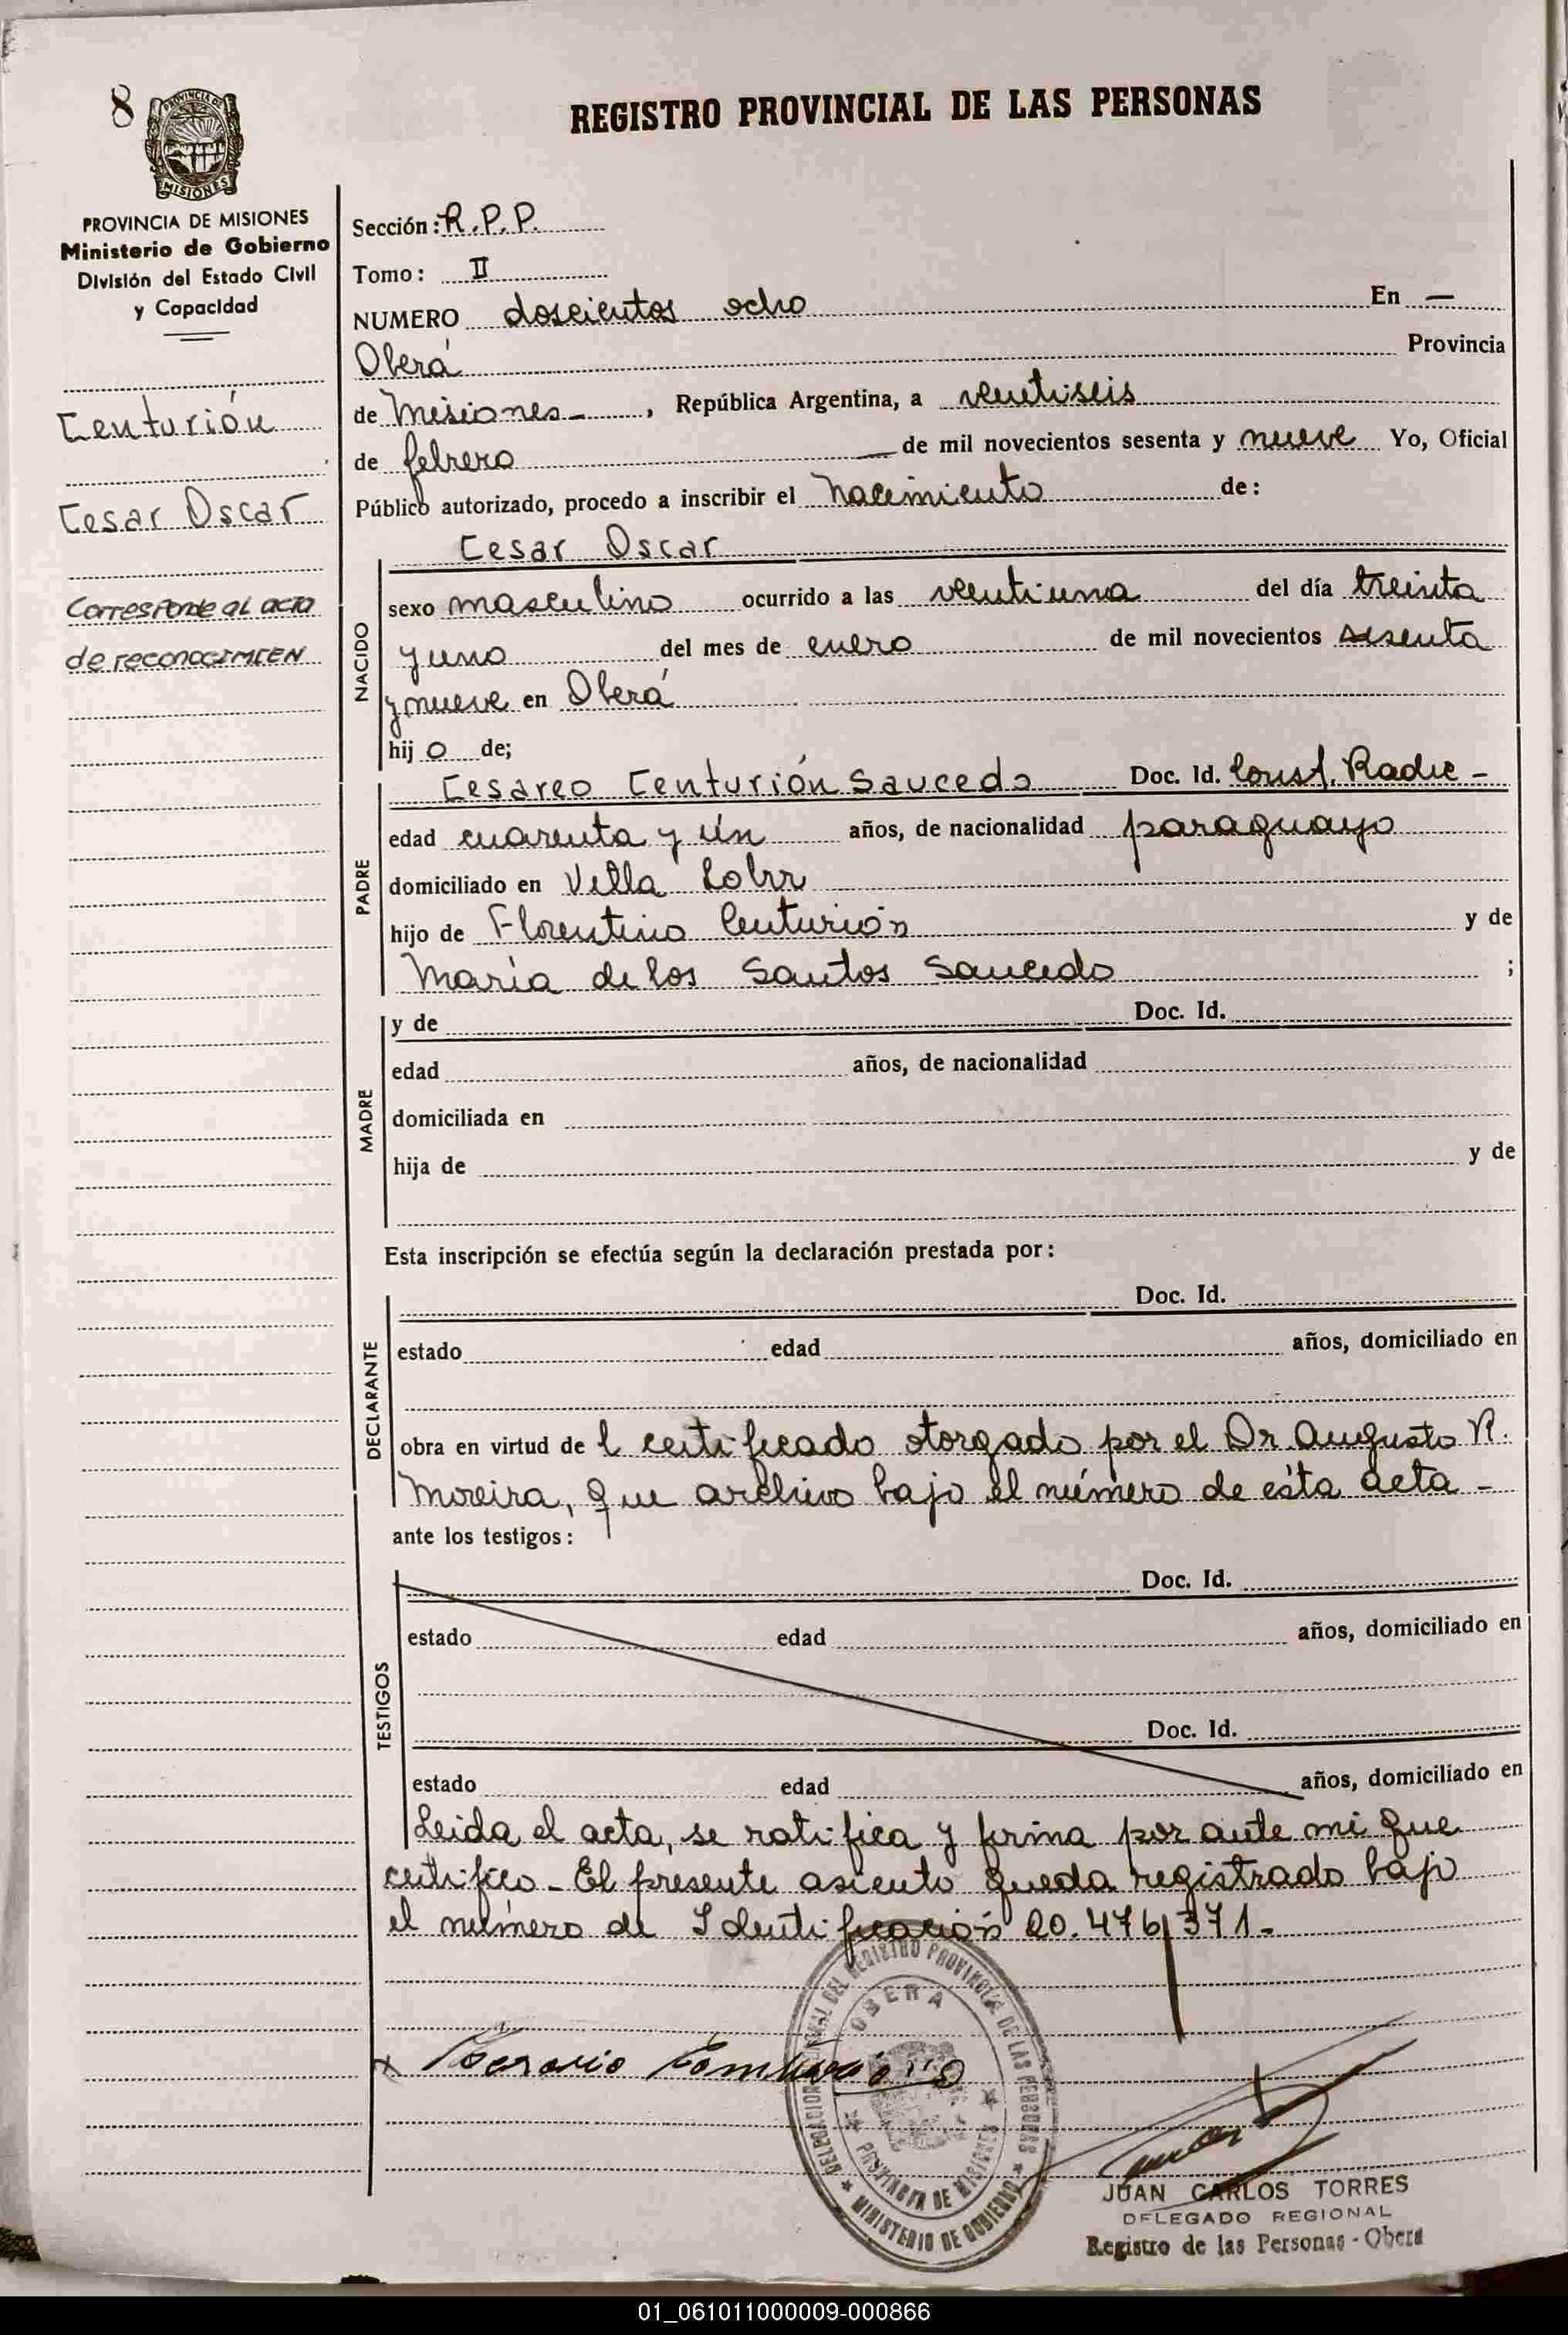 8
PROVINCIA DE
MISIONES
REGISTRO PROVINCIAL DE LAS PERSONAS
PROVINCIA DE MISIONES
Ministerio de Gobierno
División del Estado Civil
y Capacidad
Centurión
Cesar Oscar
Corresponde al acta
de reconocimien
Sección: R.P.P.
Tomo: II
NUMERO doscientos ocho En —
Oberá Provincia
de Misiones -, República Argentina, a veintiseis
de febrero — de mil novecientos sesenta y nueve Yo, Oficial
Público autorizado, procedo a inscribir el nacimiento de:
Cesar Oscar
NACIDO
sexo masculino ocurrido a las veintiuna del día treinta
y uno del mes de enero de mil novecientos sesenta
y nueve en Oberá
hij o de;
PADRE
Cesareo Centurión Saucedo Doc. Id. Const. Radic -
edad cuarenta y ún años, de nacionalidad paraguayo
domiciliado en Villa
hijo de Florentino Centurión y de
María de los Santos Saucedo ;
MADRE
y de Doc. Id.
edad años, de nacionalidad
domiciliada en
hija de y de
Esta inscripción se efectúa según la declaración prestada por:
DECLARANTE
Doc. Id.
estado edad años, domiciliado en
obra en virtud de l certificado otorgado por el Dr. Augusto R.
Moreira, que archivo bajo el número de ésta acta -
ante los testigos:
TESTIGOS
Doc. Id.
estado edad años, domiciliado en
Doc. Id.
estado edad años, domiciliado en
Leida el acta, se ratifica y firma por ante mi que
certifico - El presente asiento queda registrado bajo
el número de Identificación 20.476/371.-
DELEGACION REGIONAL DEL REGISTRO PROVINCIAL DE LAS PERSONAS
OBERA
PROVINCIA DE MISIONES
MINISTERIO DE GOBIERNO
JUAN CARLOS TORRES
DELEGADO REGIONAL
Registro de las Personas - Oberá
01_061011000009-000866